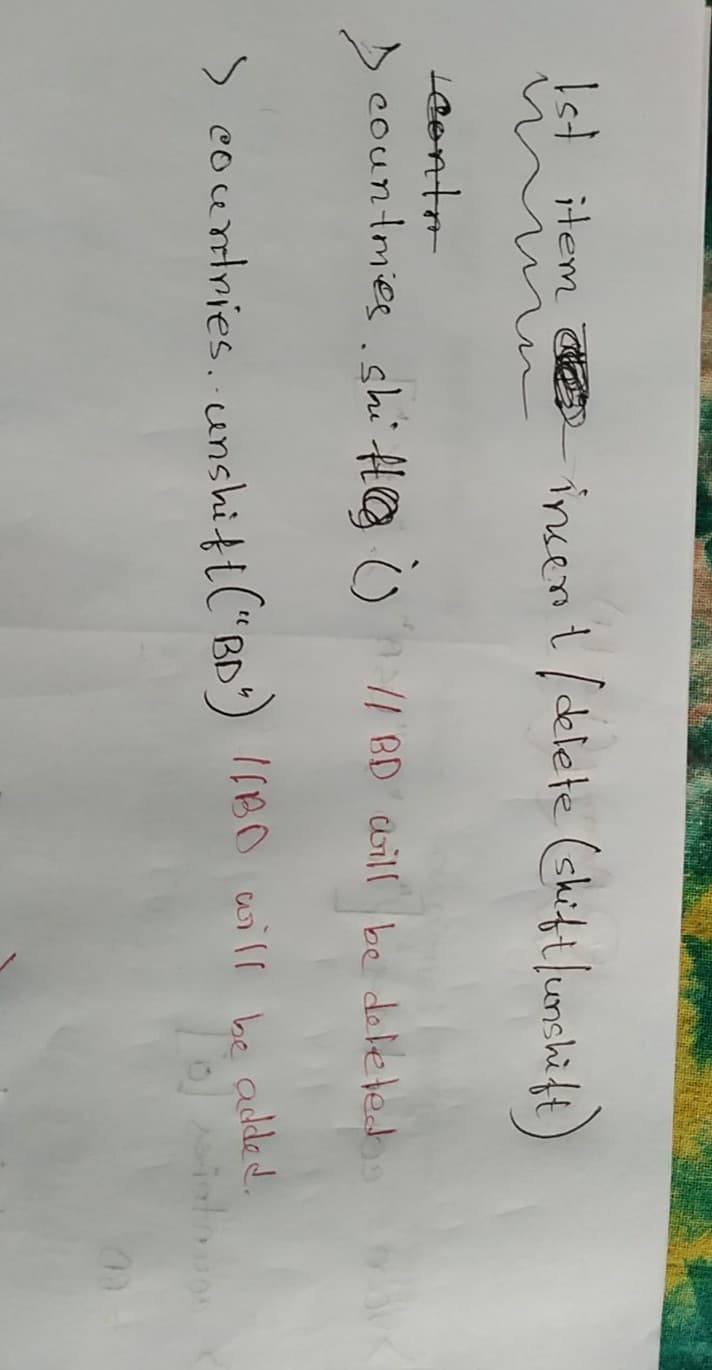 1st item insert/delete (shift/unshift)
contr
> countries.shift() // BD will be deleted
> countries.unshift("BD") //BD will be added.